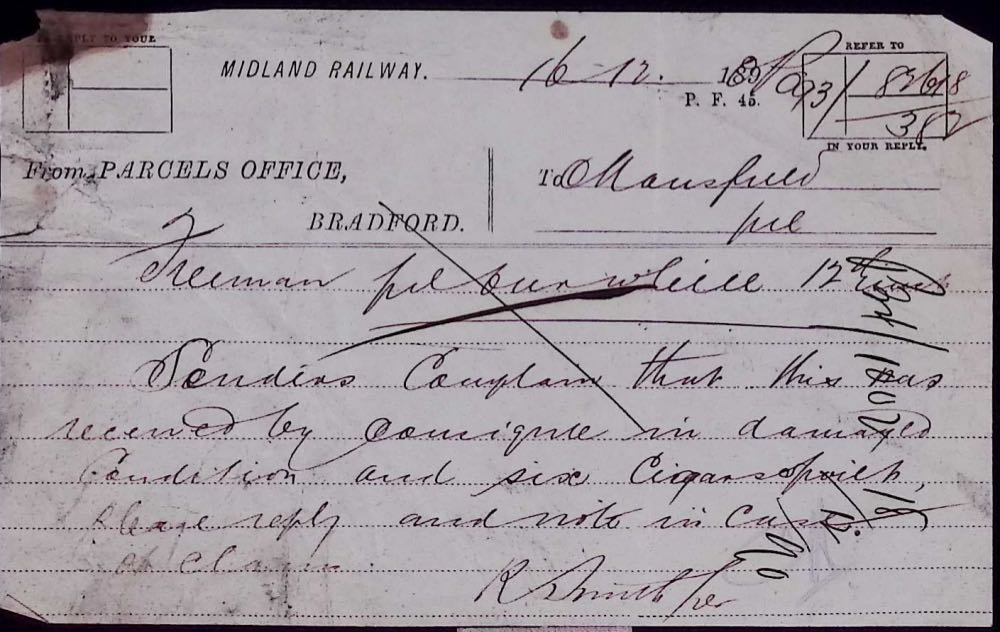 IN REPLY TO YOUR
REFER TO
MIDLAND RAILWAY. 16-12. 189
P. F. 45.
93/ 82618
382
IN YOUR REPLY.
From PARCELS OFFICE,
BRADFORD.
To Mansfield
pcl
Freeman pcl our 12
Senders Complain that this was
received by Consignee in damaged
Condition and six Cigars spoilt,
Please reply and note in Case
of claim.
R Smith